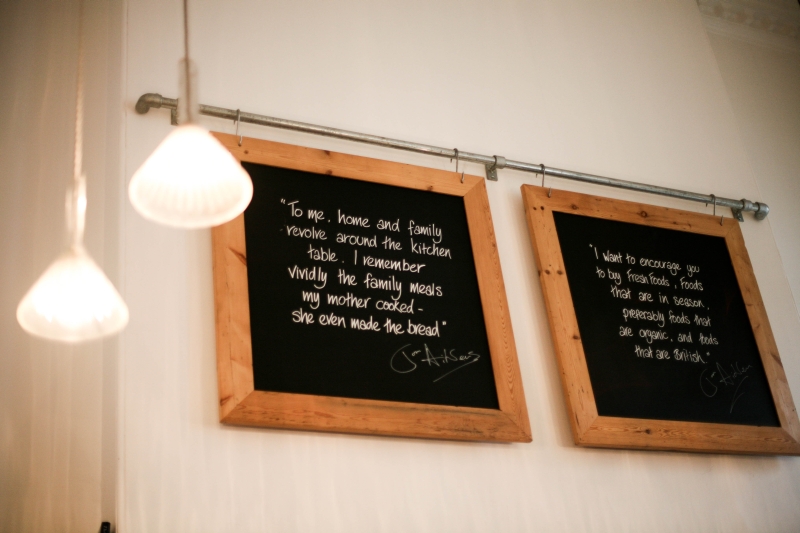 "To me, home and family
revolve around the kitchen
table. I remember
vividly the family meals
my mother cooked -
she even made the bread"
"I want to encourage you
to buy fresh foods, foods
that are in season,
preferably foods that
are organic, and foods
that are British."